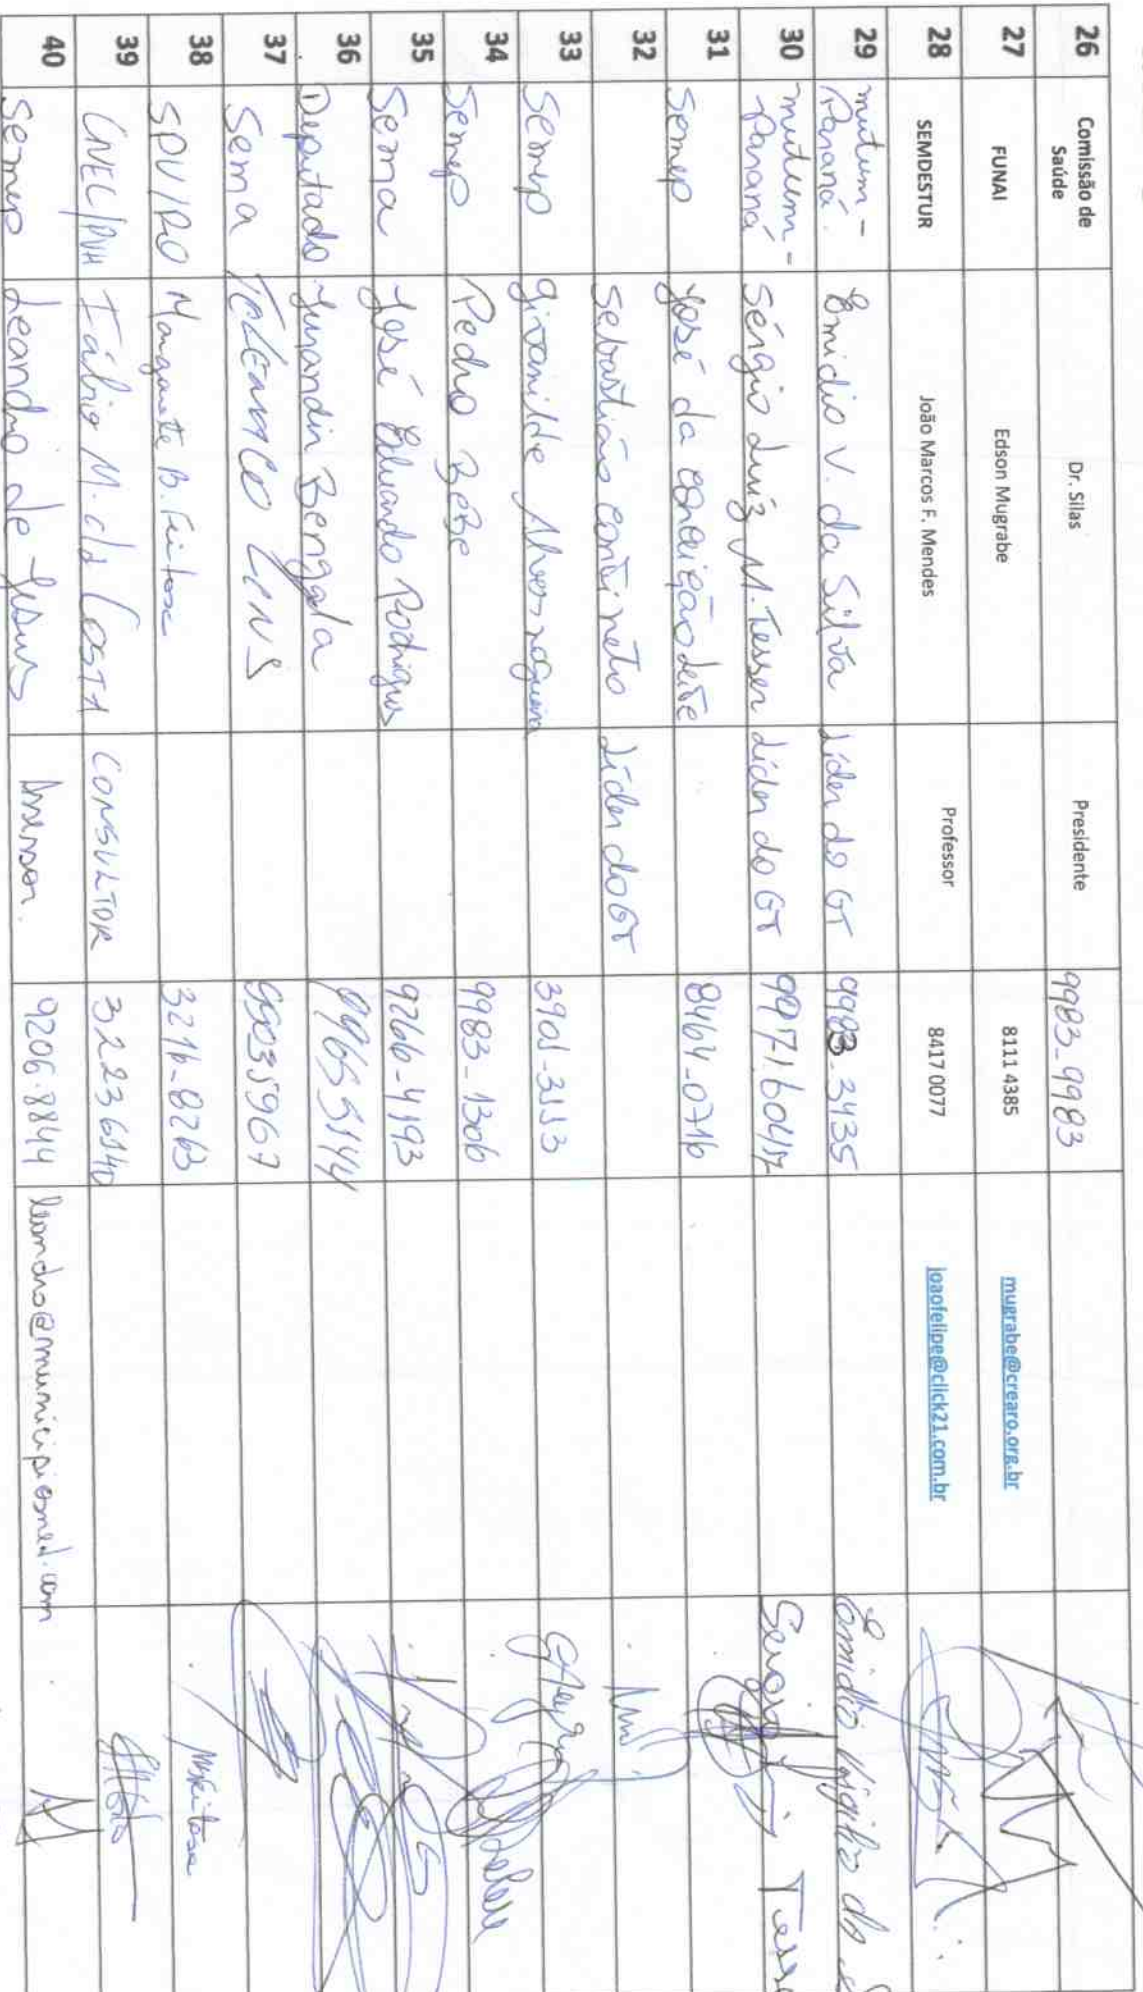 26 Comissão de Saúde Dr. Silas Presidente 9983-9983
27 FUNAI Edson Mugrabe 8111 4385 mugrabe@crearo.org.br
28 SEMDESTUR João Marcos F. Mendes Professor 8417 0077 joaofelipe@click21.com.br
29 mutum-Paraná. Emidio V. da Silva Líder do GT 9983-3435 Emidio Virgílio da S
30 mutum-Paraná Sérgio Luiz M. Tesser Líder do GT Sergio Tess
31 Semep José da Conceição Leite 8464-0716
32 Sebastião neto Líder do GT
33 Semep Girvanilde Alves nogueira 3901-3113
34 Semep Pedro Bebe 9983-1306
35 Sema José Eduardo Rodrigues 9266-4193
36 Deputado Jurandir Bengala 99655144
37 Sema LENS 99035967
38 SPU/RO Marguete B. Feitosa 3216-8263 MFeitosa
39 CNEC/PVH Fábio M. da COSTA CONSULTOR 32236140
40 Semep Leandro de Jesus Assessor. 9206.8844 leandro@municipiosned.com